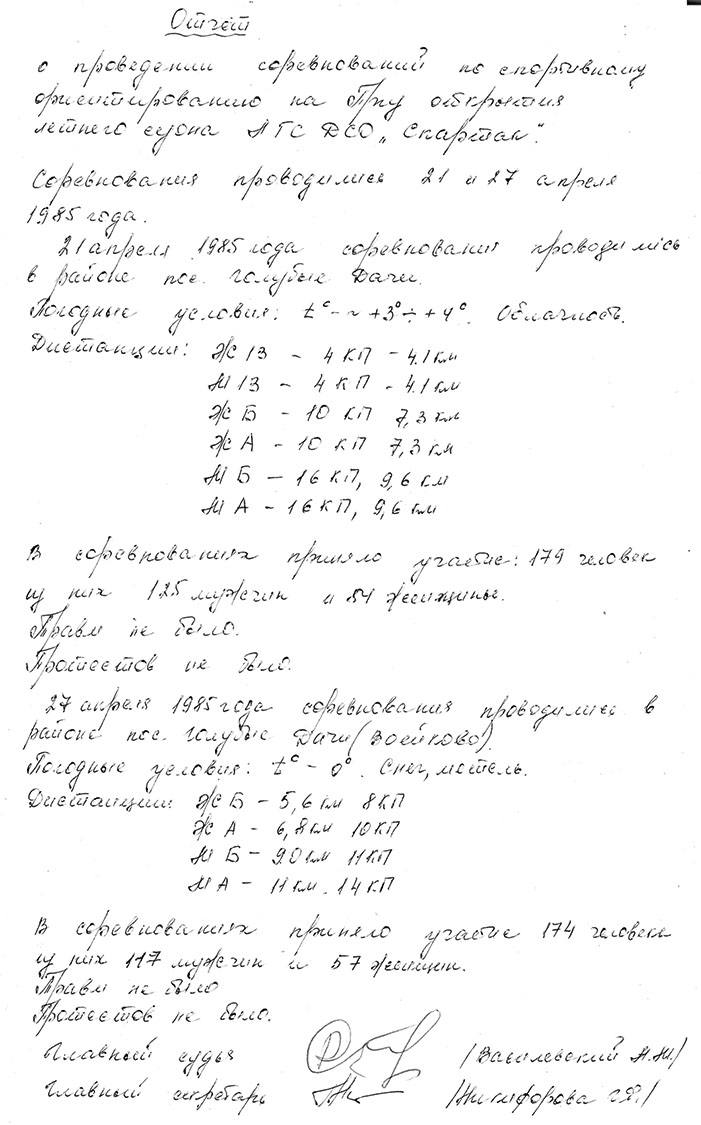 Отчет
о проведении соревнований по спортивному
ориентированию на Приз открытия
летнего сезона ЛГС ДСО „Спартак".
Соревнования проводились 21 и 27 апреля
1985 года.
21 апреля 1985 года соревнования проводились
в районе пос. Голубые Дачи.
Погодные условия: t° - ~ +3° ÷ +4°. Облачность.
Дистанции: Ж 13 - 4 КП - 4.1 км
М 13 - 4 КП - 4.1 км
Ж Б - 10 КП 7,3 км
Ж А - 10 КП 7,3 км
М Б - 16 КП, 9,6 км
М А - 16 КП, 9,6 км
В соревнованиях приняло участие: 179 человек
из них 125 мужчин и 54 женщины.
Травм не было.
Протестов не было.
27 апреля 1985 года соревнования проводились в
районе пос. Голубые Дачи (Воейково).
Погодные условия: t° - 0°. Снег, метель.
Дистанции: Ж Б - 5,6 км 8 КП
Ж А - 6,8 км 10 КП
М Б - 9.0 км 11 КП
М А - 11 км. 14 КП
В соревнованиях приняло участие 174 человека
из них 117 мужчин и 57 женщин.
Травм не было
Протестов не было.
Главный судья /Василевский А.М./
Главный секретарь /Никифорова Г.Я./